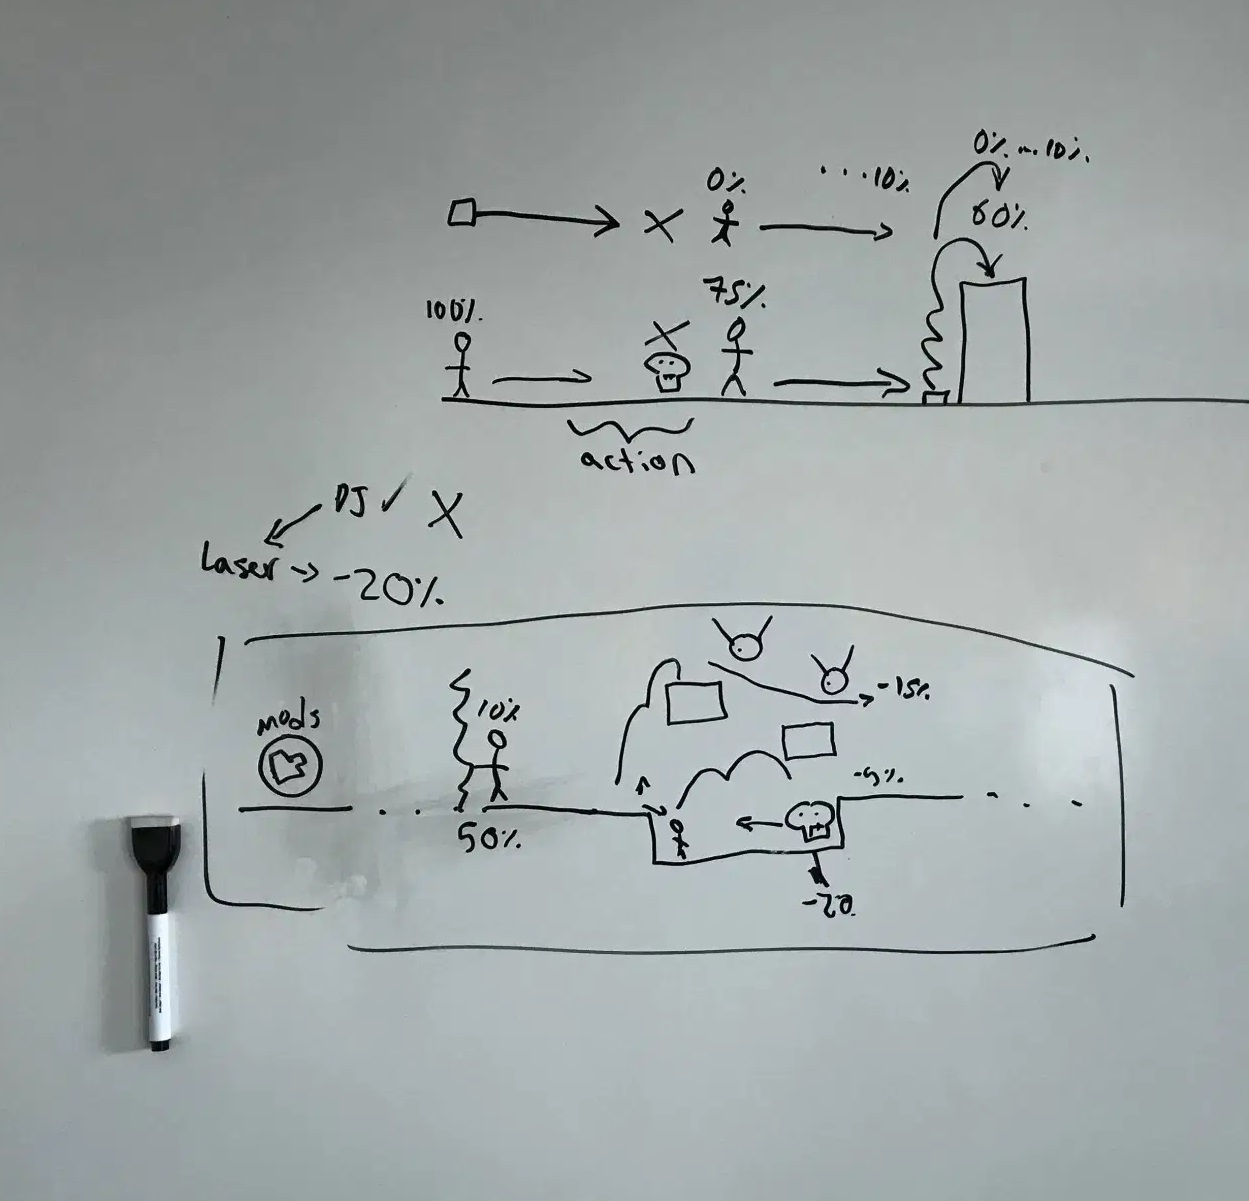 0% ... 10%
0%
... 10%
60%
75%
100%
action
DJ ✓ X
Laser → -20%
mods
10%
-15%
-5%
50%
-20